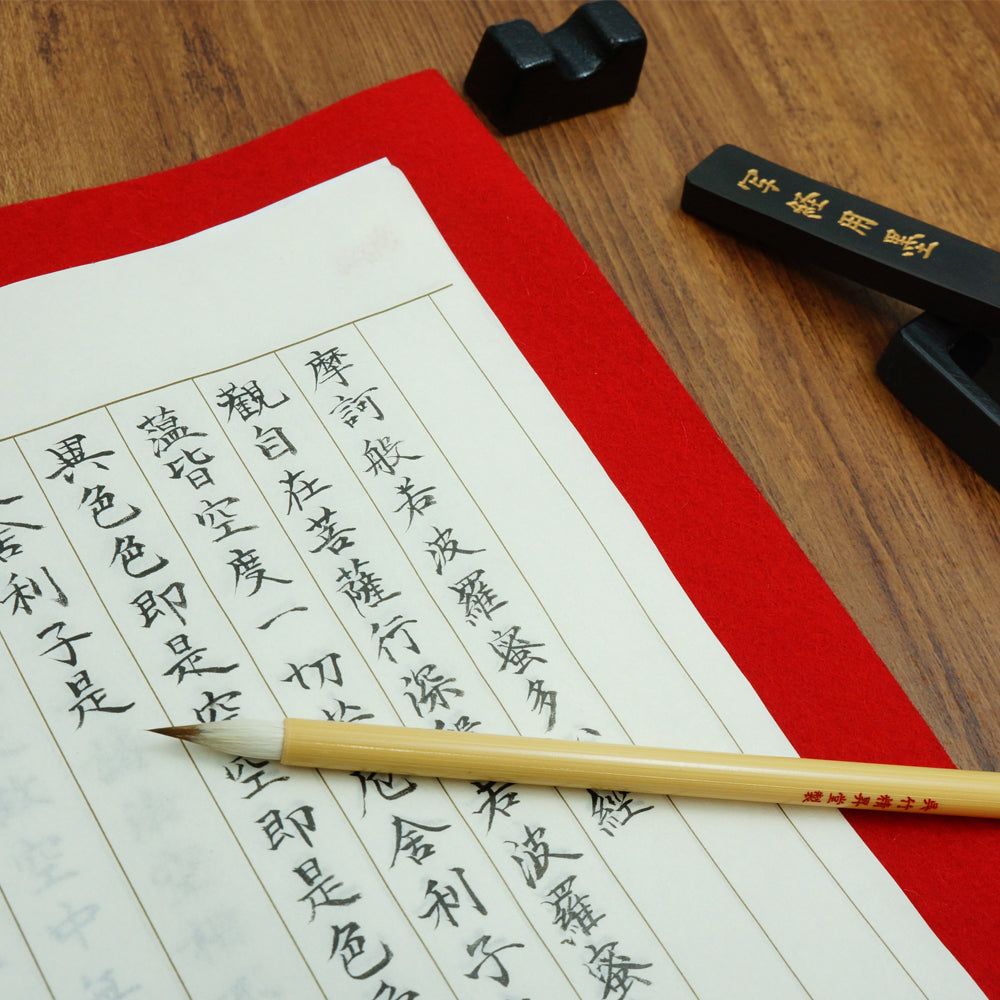 摩訶般若波羅蜜多經
觀自在菩薩行深般若波羅蜜
薀皆空度一切苦厄舍利子
異色色即是空空即是色色
舍利子是
写経用墨
呉竹精昇堂製